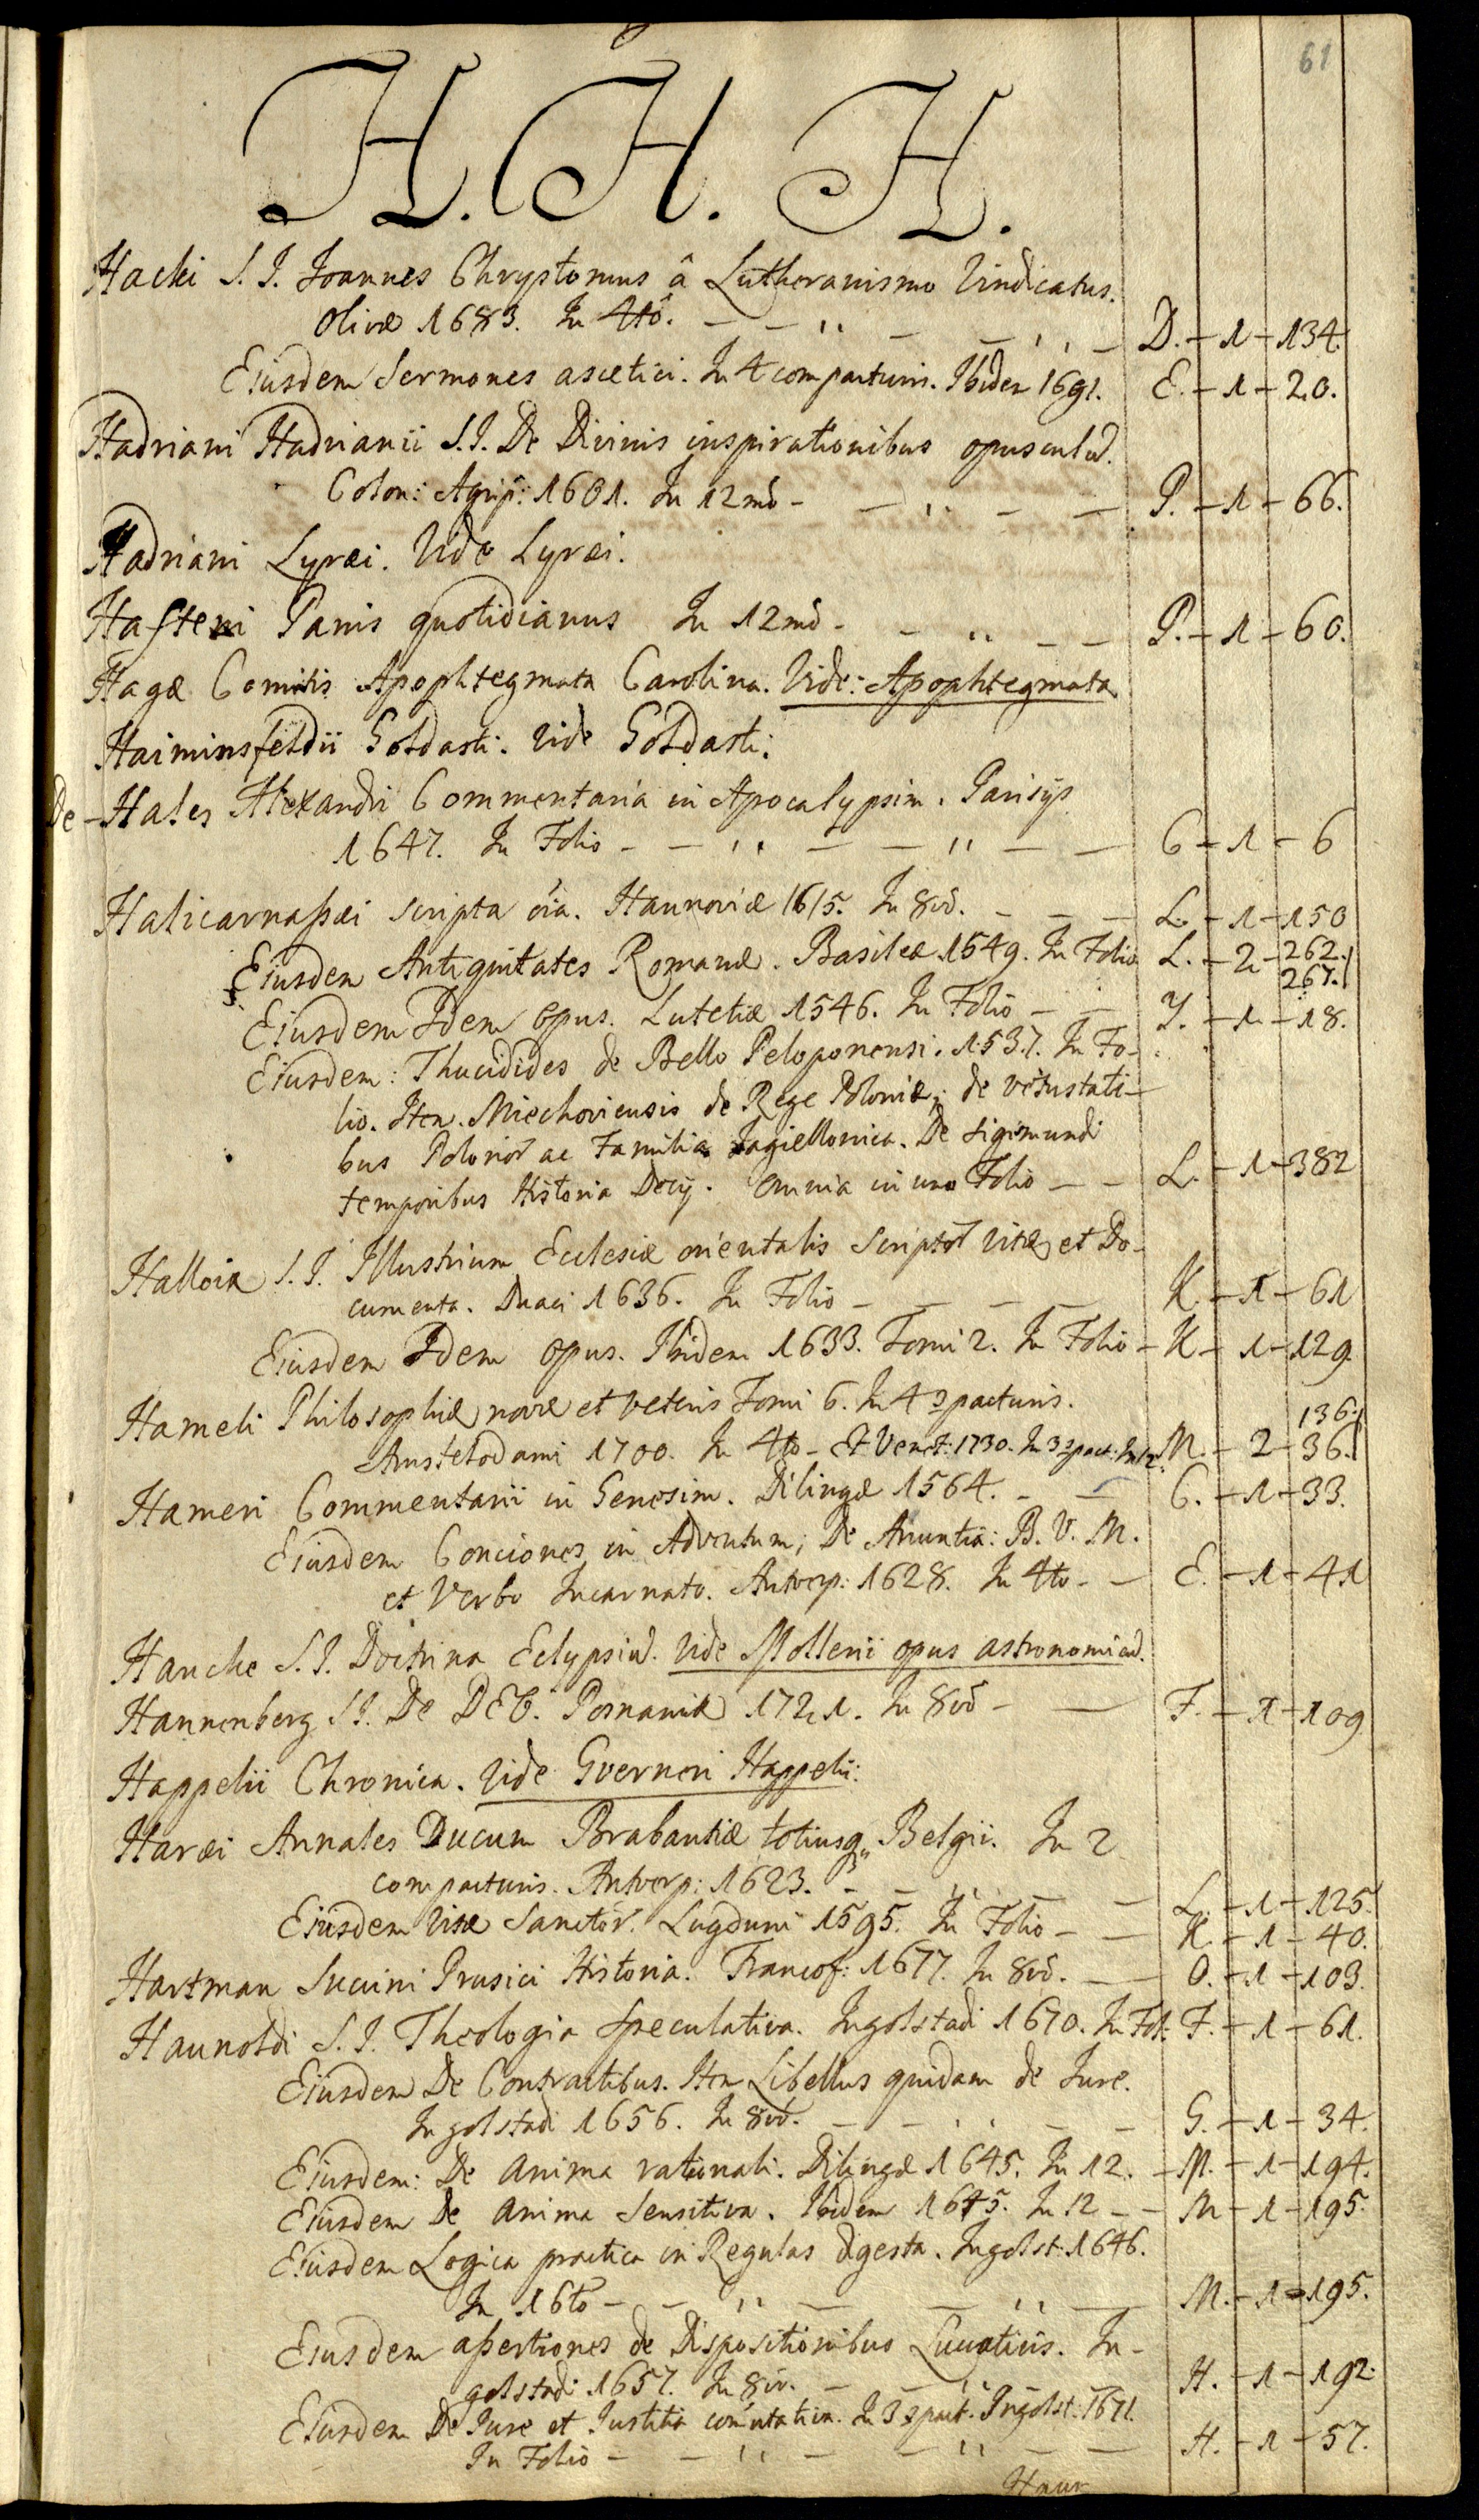 61
H. H. H.
Hacki S. J. Joannes Chrystomus â Lutheranismo Vindicatus.
Olivæ 1683. In 4tô. D. - 1 - 134.
Ejusdem Sermones ascetici. In 4 compacturis. Ibidem 1691. E. - 1 - 20.
Hadriani Hadrianii S. J. De Divinis inspirationibus opusculũ.
Colon: Agrip: 1601. In 12mô - P. - 1 - 66.
Hadriani Lyræi. Vide Lyræi.
Hafteni Panis quotidianus In 12mô - P. - 1 - 60.
Hagæ Comitis Apophtegmata Carolina. Vide: Apophtegmata
Haiminsfeldii Goldasti. Vide Goldasti.
De - Hales Alexandri Commentaria in Apocalypsim. Parisijs
1647. In Folio - C - 1 - 6
Halicarnaßæi scripta oĩa. Hannoviæ 1615. In 8vô. L. - 1 - 150
Ejusdem Antiquitates Romanæ. Basileæ 1549. In Folio L. - 2 - 262.
267.
Ejusdem Idem opus. Lutetiæ 1546. In Folio - Y. - 1 - 18.
Ejusdem: Thucidides de Bello Peloponensi. 1537. In Fo-
lio. Item. Miechoviensis de Rege Poloniæ; de vetustati-
bus Polonor̃ ac Familia Jagiellonica. De Sigismundi
temporibus Historia Decij. omnia in uno Folio - L. - 1 - 382
Halloix S. J. Illustrium Ecclesiæ orientalis Scriptor̃ vitæ et Do-
cumenta. Duaci 1636. In Folio - K. - 1 - 61
Ejusdem Idem opus. Ibidem 1633. Tomi 2. In Folio - K - 1 - 129
Hameli Philosophiæ novæ et veteris Tomi 6. In 4 ꝯpacturis.
136.
Amstelodami 1700. In 4to - Et Venet: 1730. In 3 ꝯpact: In 12. M. - 2 - 36.
Hameri Commentarii in Genesim. Dilingæ 1564. C. - 1 - 33.
Ejusdem Conciones in Adventum; De Anuntia: B. V. M.
et Verbo Incarnato. Antverp: 1628. In 4to - E. - 1 - 41
Hancke S. J. Doctrina Eclypsiũ. Vide Mollerii opus astronomicũ.
Hannenberg S J. De DEO. Posnaniæ 1721. In 8vô - F. - 1 - 109
Happelii Chronica. Vide Gverneri Happelii.
Haræi Annales Ducum Brabantiæ totiusq, Belgii. In 2
compacturis. Antverp: 1623. L. - 1 - 125.
Ejusdem Vitæ Sanctor̃. Lugduni 1595. In Folio - K. - 1 - 40.
Hartman Succini Prusici Historia. Francof: 1677. In 8vô. O. - 1 - 103.
Haunoldi S. J. Theologia Speculativa. Ingolstadi 1670. In Fol: F. - 1 - 61.
Ejusdem De Contractibus. Item Libellus quidam de Jure.
Ingolstadi 1656. In 8vô. G. - 1 - 34.
Ejusdem: De Anima rationali. Dilingæ 1645. In 12. - M. - 1 - 194.
Ejusdem De Anima Sensitiva. Ibidem 1645. In 12 - M - 1 - 195.
Ejusdem Logica practica in Regulas digesta. Ingolst: 1646.
In 16to - M. - 1 - 195.
Ejusdem aßertiones de Dispositionibus In-
golstadi 1657. In 8vô. H. - 1 - 192.
Ejusdem De Jure et Justitia com̃utativa. In 3 ꝯpact. Ingolst: 1671.
In Folio - H. - 1 - 57.
Haur